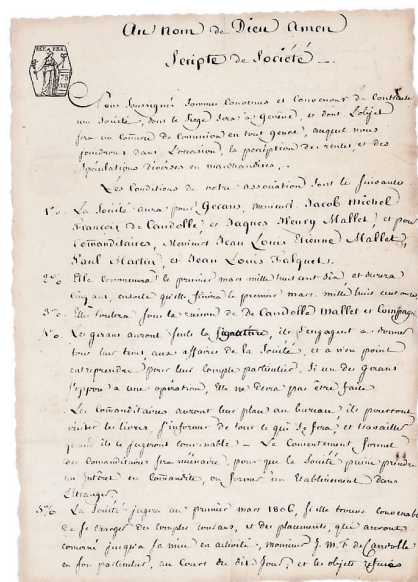 Au Nom de Dieu Amen
Scripte de Société
REP. FRA.
75
Nous Soussigné Sommes Convenus et Convenons de Contracter
une Société, dont le Siege Sera à Genève, et dont l'objet
Sera un Comerce de Comission en tout genre, auquel nous
joindrons dans l'occasion, la perception des rentes, et des
Spéculations diverses en marchandises.
Les Conditions de notre association Sont les Suivantes
1º. La Société aura pour Gerans, messieurs Jacob Michel
François de Candolle et Jaques Henry Mallet, et pour
Comanditaires, Messieurs Jean Louis Etienne Mallet,
Paul Martin, et Jean Louis Falquet.
2º. Elle Commencera le premier mars mille huit cent Six, et durera
Cinq ans, ensorte qu'elle finira le premier mars mille huit cent onze
3º. Elle Roulera Sous la raison de De Candolle Mallet et Compagnie
Les gerans auront Seuls la Signature, ils S'engagent à donner
tout leur tems, aux affaires de la Société, et à n'en point
entreprendre pour leur Compte particulier. Si un des Gerans
S'oppose à une opération, Elle ne devra pas être faite
Les Comanditaires auront leur place au bureau, ils pourront
visiter les livres, S'informer de tout ce qui Se fera, et travailler
quand ils le jugeront Convenable — Le Consentement formel
des Comanditaires Sera nécessaire, pour que la Société puisse prendre
un Intéret en Comandite, ou former un Etablissement dans
l'Etranger.
La Société jugera au premier mars 1806, Si elle trouve Convenable
de Se Charger des Comptes Courans, et des placements, que auront
Concerné jusques à Sa mise en activité, monsieur J. M. F. de Candolle
en Son particulier, au Cours du dit Jour, et les objets refusés